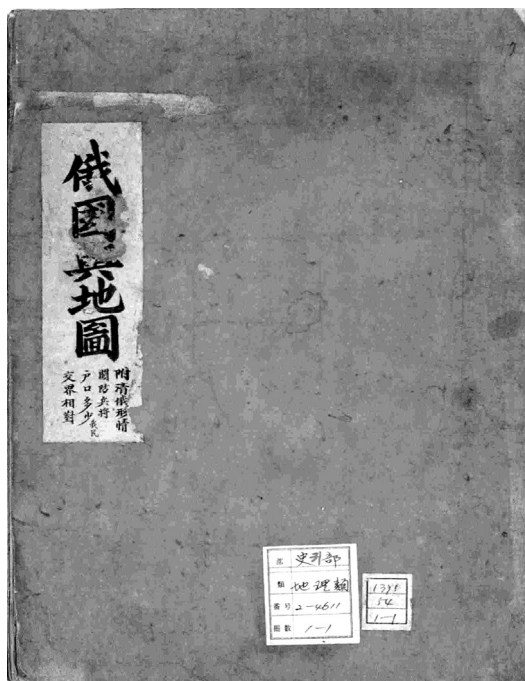 俄國輿地圖
附清俄形情
關防兵將
戶口多少我民
交界相對
部 史料部
類 地理類
番号 2-4611
冊数 1-1
54
1-1